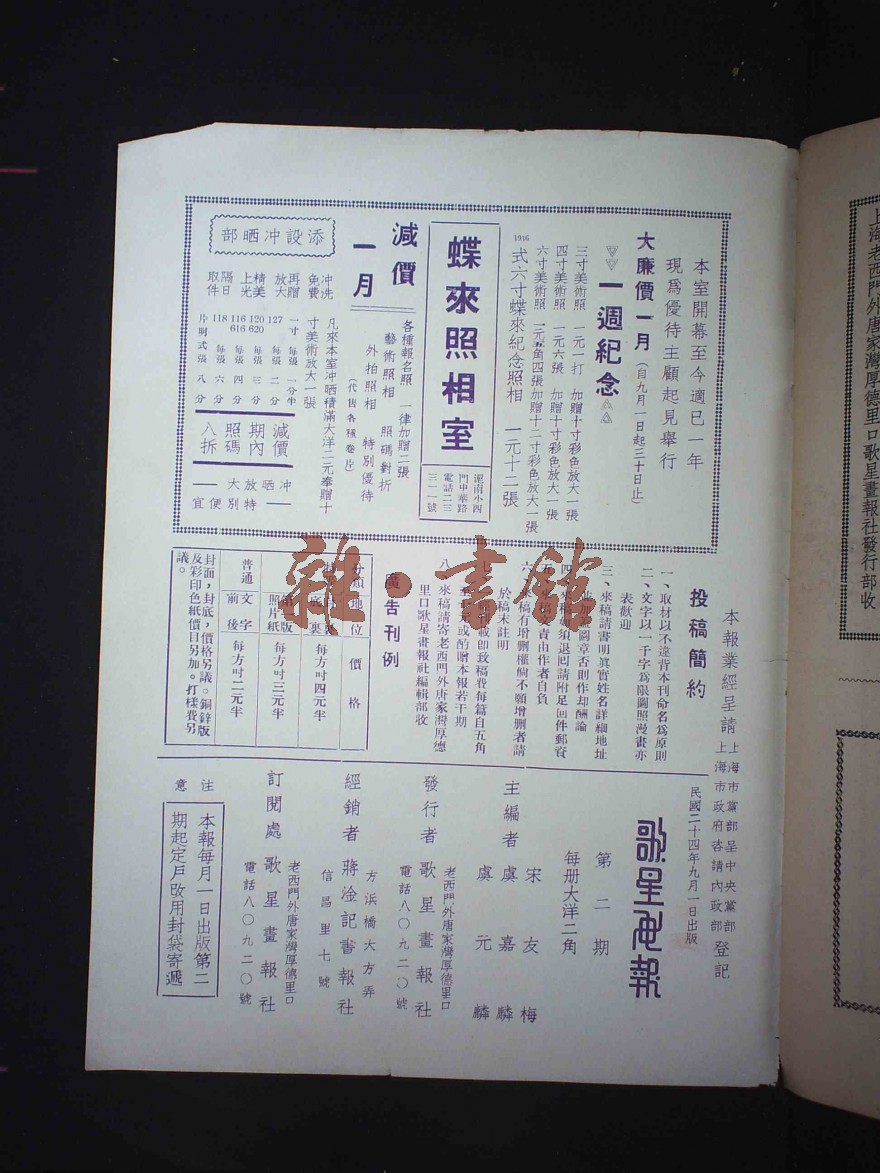 上海老西門外唐家灣厚德里口歌星畫報社發行部收
本室開幕至今適已一年
現爲優待主顧起見舉行
大廉價一月(自九月一日起三十日止)
一週紀念
三寸美術照 一元一打 加贈十寸彩色放大一張
四寸美術照 一元六張 加贈十寸彩色放大一張
六寸美術照 二元五角四張加贈十二寸彩色放大一張
1916式六寸蝶來紀念照相 一元十二張
蝶來照相室
滬南小四
門中華路
電話二三
三一一號
減價
一月
各種報名照 一律加贈二張
藝術照相 照碼對折
外拍照相 特別優待
(代售各種卷片)
添設冲晒部
冲洗免費
再贈放大
精美上光
隔日取件
凡來本室冲晒積滿大洋二元奉贈十
寸美術放大一張
一寸 每張 一分半
127 每張 二分
120 620 每張 三分
116 616 每張 四分
118 每張 六分
片明式張 八分
減價期內照碼八折
冲晒放大特別便宜
本報業經呈請
上海市黨部呈中央黨部
上海市政府咨請內政部
登記
投稿簡約
一、取材以不違背本刊命名爲原則
二、文字以一千字爲限圖照漫畫亦
表歡迎
三、來稿請書明眞實姓名詳細地址
並加蓋圖章否則作却酬論
四、來稿如須退回請附足回件郵資
五、來稿文責由作者自負
六、來稿有增删權倘不願增删者請
於稿末註明
七、
刊載即致稿費每篇自五角
至
元或酌贈本報若干期
八、來稿請寄老西門外唐家灣厚德
里口歌星畫報社編輯部收
廣告刊例
分類 地位 價格
底裏 每方吋四元半
照片版紙 每方吋三元半
普通 文字前後 每方吋二元半
封面,封底,價格另議。銅鋅版
及彩印色紙價目另加。打樣費另
議。
民國二十四年九月一日出版
歌星畫報
第二期
每册大洋二角
主編者 宋友梅
虞嘉麟
虞元麟
發行者 歌星畫報社
老西門外唐家灣厚德里口
電話八〇九二〇號
經銷者 蔣淦記書報社
方浜橋大方弄
信昌里七號
訂閱處 歌星畫報社
老西門外唐家灣厚德里口
電話八〇九二〇號
注意
本報每月一日出版第二
期起定戶改用封袋寄遞
雜·書館